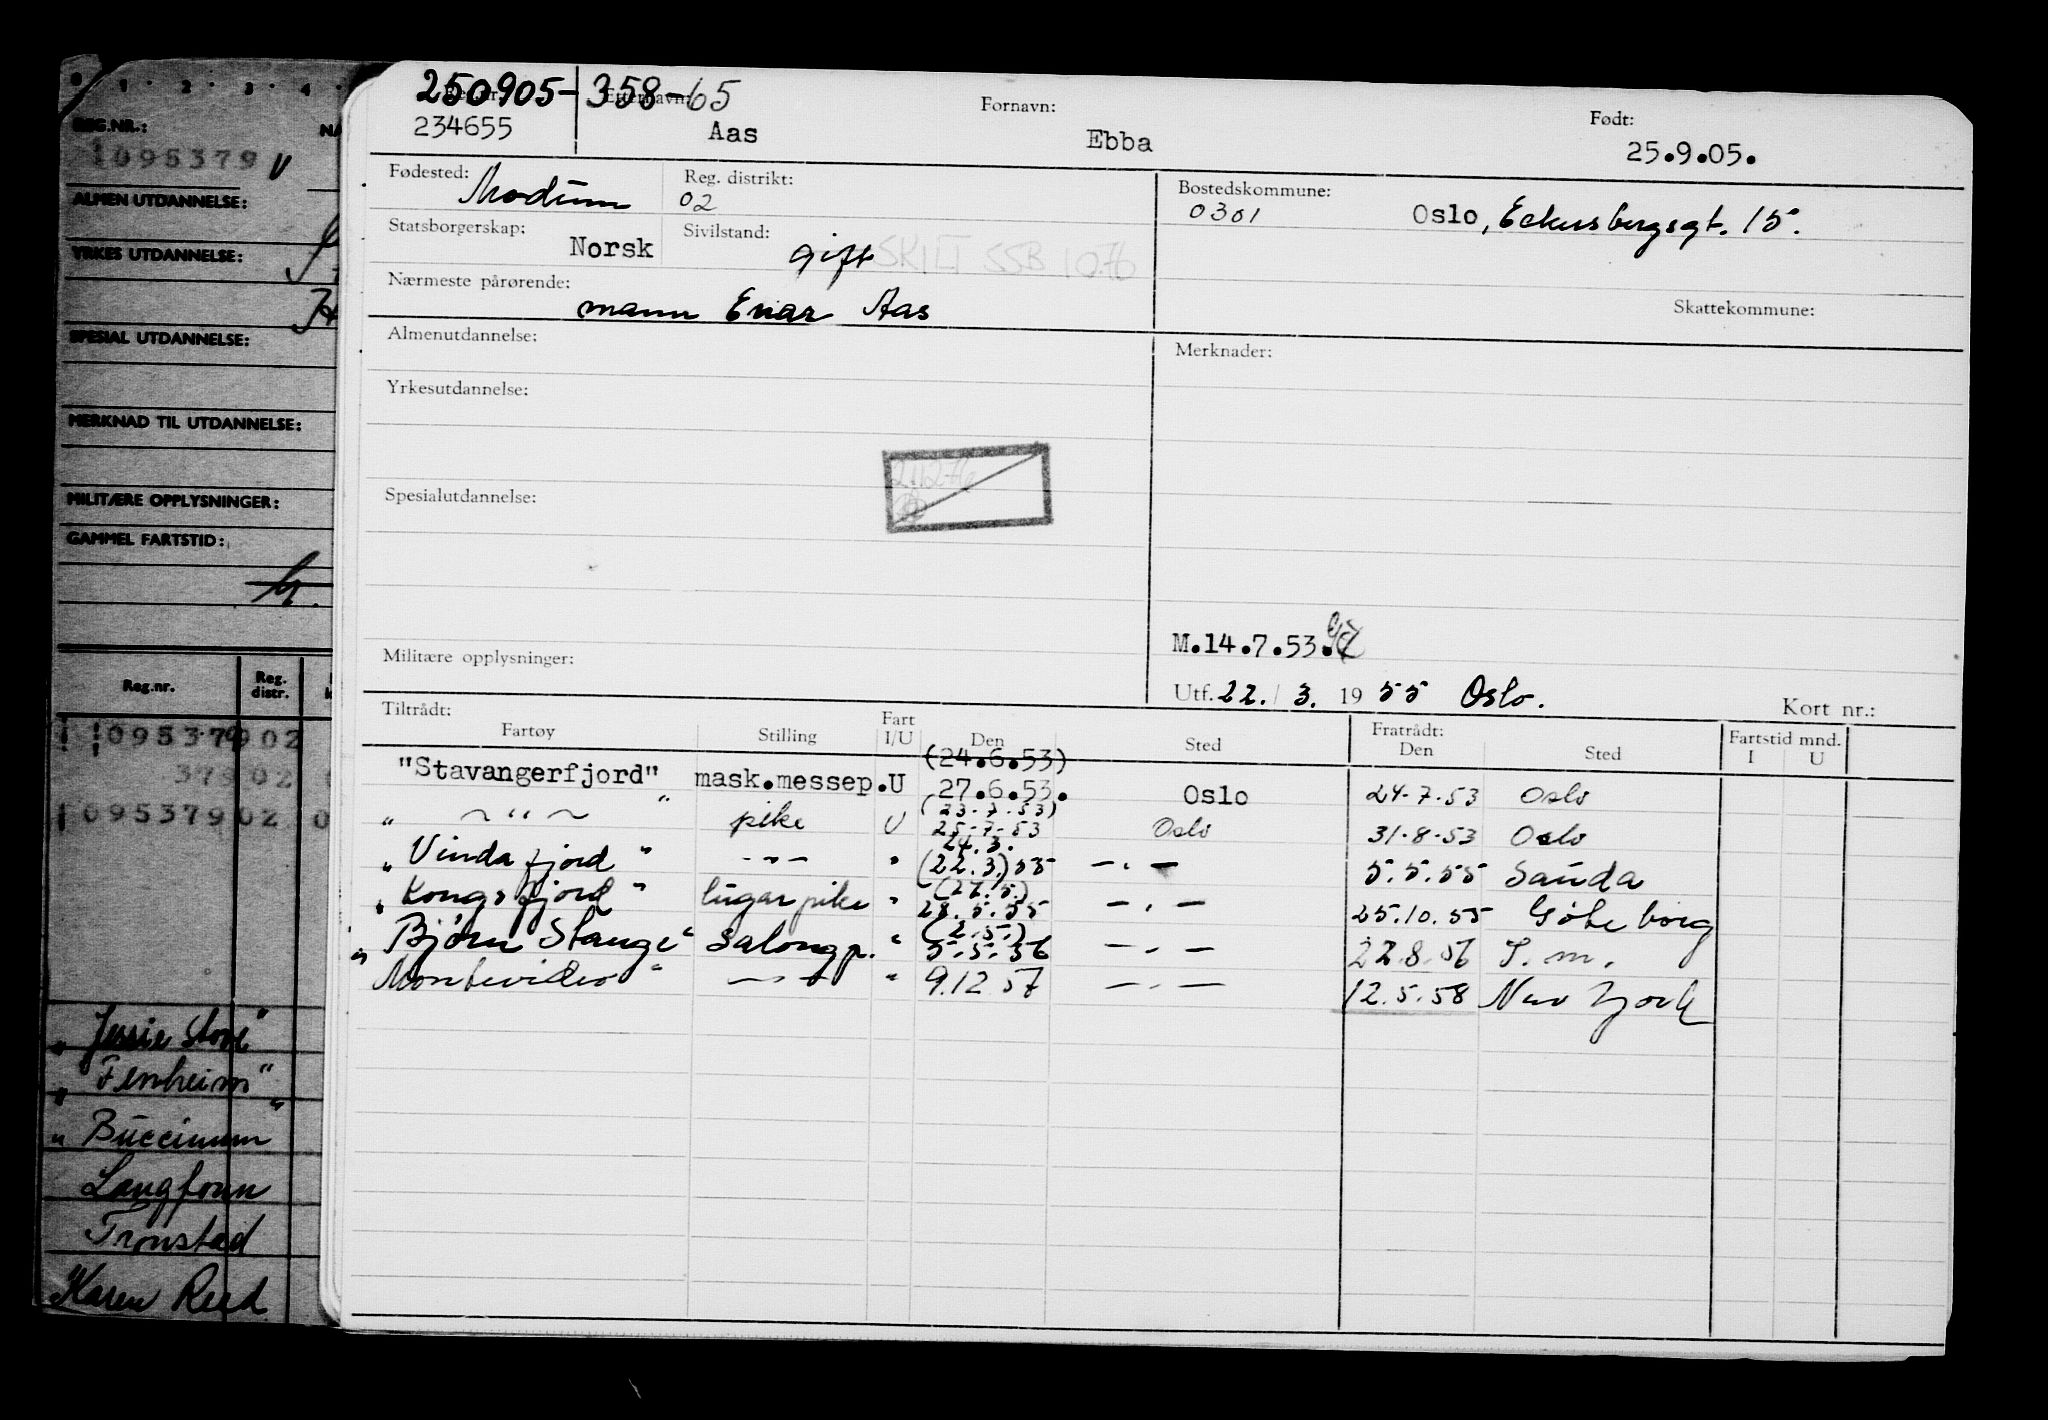 0 · 1 · 2 · 3 · 4 ·
REG.NR.:
1095379 V
ALMEN UTDANNELSE:
YRKES UTDANNELSE:
SPESIAL UTDANNELSE:
MERKNAD TIL UTDANNELSE:
MILITÆRE OPPLYSNINGER:
GAMMEL FARTSTID:
Reg.nr. Reg. distr.
1095379 02
379 02
1095379 02 0
"Jessie Stove"
"Fenheim"
"Buccinum"
Langfonn
Tronstad
"Karen Reed
250905-358-65
Reg.nr. Etternavn: Fornavn: Født:
234655 Aas Ebba 25.9.05.
Fødested: Modum Reg. distrikt: 02 Bostedskommune: 0301 Oslo, Eckersbergsgt. 15.
Statsborgerskap: Norsk Sivilstand: gift SKILT SSB 10.76
Nærmeste pårørende: mann Enar Aas Skattekommune:
Almenutdannelse: Merknader:
Yrkesutdannelse:
Spesialutdannelse:
M.14.7.53.
Militære opplysninger:
Utf. 22. / 3. 19 55 Oslo. Kort nr.:
Tiltrådt: Fratrådt: Fartstid mnd.
Fartøy Stilling Fart I/U Den Sted Den Sted I U
(24.6.53)
"Stavangerfjord" mask.messep. U 27.6.53. Oslo 24.7.53 Oslo
(23.7.53)
" — " — " pike U 25.7.53 Oslo 31.8.53 Oslo
24.3.
"Vindafjord" — " — " (22.3.) 55 — " — 5.5.55 Sauda
(27.5.)
"Kongsfjord" lugarpike " 28.5.55 — " — 25.10.55 Göteborg
(2.5.)
"Bjørn Stange" salongp. " 5.5.56 — " — 22.8.56 S.m.
"Montevideo" — " — " 9.12.57 — " — 12.5.58 New York